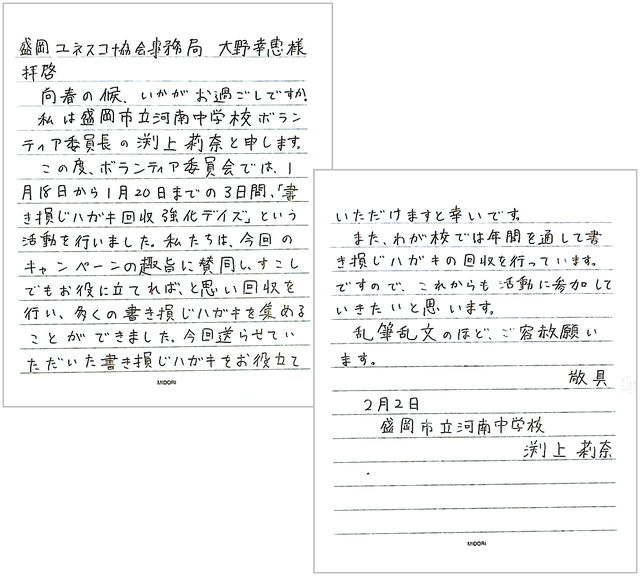 盛岡ユネスコ協会事務局 大野幸恵様
拝啓
向春の候、いかがお過ごしですか。
私は盛岡市立河南中学校ボラン
ティア委員長の渕上莉奈と申します。
この度、ボランティア委員会では、1
月18日から1月20日までの3日間、「書
き損じハガキ回収強化デイズ」という
活動を行いました。私たちは、今回の
キャンペーンの趣旨に賛同し、すこし
でもお役に立てれば、と思い回収を
行い、多くの書き損じハガキを集める
ことができました。今回送らせてい
ただいた書き損じハガキをお役立て
MIDORI
いただけますと幸いです。
また、わが校では年間を通して書
き損じハガキの回収を行っています。
ですので、これからも活動に参加して
いきたいと思います。
乱筆乱文のほど、ご容赦願い
ます。
敬具
2月2日
盛岡市立河南中学校
渕上 莉奈
MIDORI